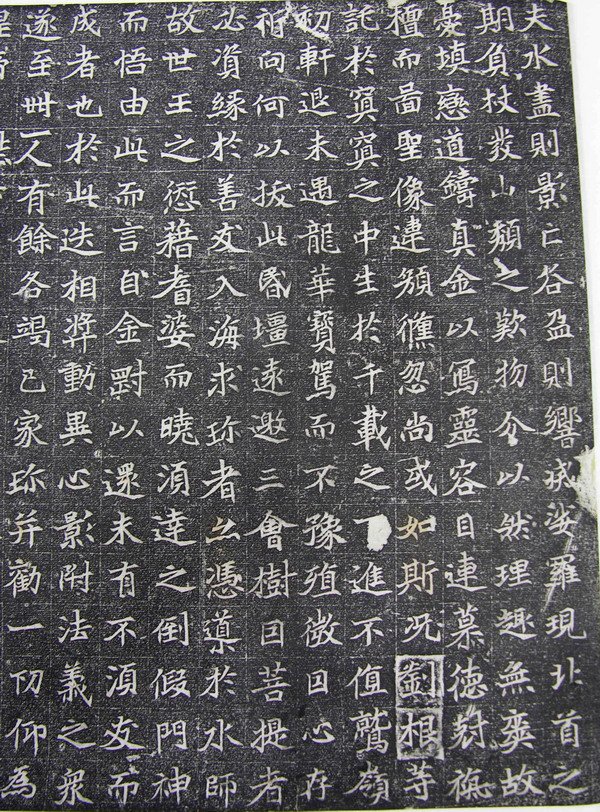 夫水盡則影亡谷盈則響戒娑羅現北首之
期負杖發山頹之歎物分以然理趣無爽故
憂填戀道鑄真金以寫靈容目連慕德尅旃
檀而啚聖像違顏倏忽尚或如斯况劉根等
託於冥冥之中生於千載之下進不值鷲嶺
初軒退未遇龍華寶駕而不豫殖微因心存
祈向何以拔此昬壃遠邀三會樹因菩提者
必資緣於善友入海求珎者必憑導於水師
故世王之愆藉耆婆而曉須達之倒假門神
而悟由此而言自金剛以還未有不須友而
成者也於此迭相獎動異心影附法義之眾
遂至卌一人有餘各竭己家珎并勸一切仰為